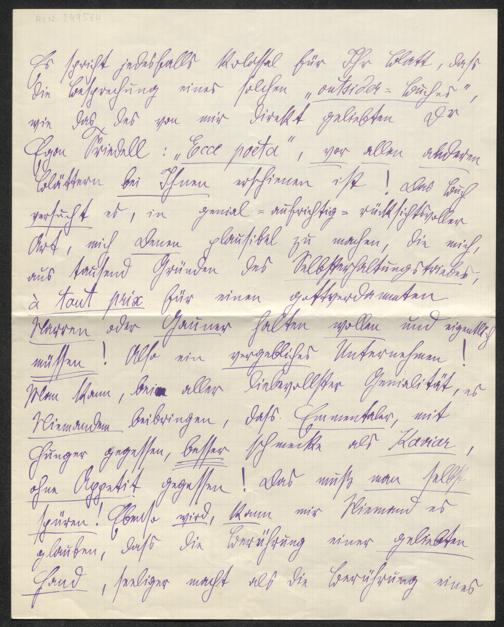 Es spricht jedesfalls kolossal für Ihr Blatt, dass
die Besprechung eines solchen „outsider-Buches",
wie das, des von mir direkt geliebten Dr
Egon Friedell: „Ecce poeta", vor allen anderen
Blättern bei Ihnen erschienen ist! Das Buch
versucht es, in genial-aufrichtig-rücksichtsvoller
Art, mich Denen plausibel zu machen, die mich,
aus tausend Gründen des Selbsterhaltungstriebes,
à tout prix für einen gottverdammten
Narren oder Gauner halten wollen und eigentlich
müssen! Also ein vergebliches Unternehmen!
Man kann, bei aller liebevollster Genialität, es
Niemandem beibringen, dass Emmentaler, mit
Hunger gegessen, besser schmecke als Kaviar,
ohne Appetit gegessen! Das muß man selbst
spüren! Ebenso wird, kann mir Niemand es
glauben, dass die Berührung einer geliebten
Hand, seeliger macht als die Berührung eines